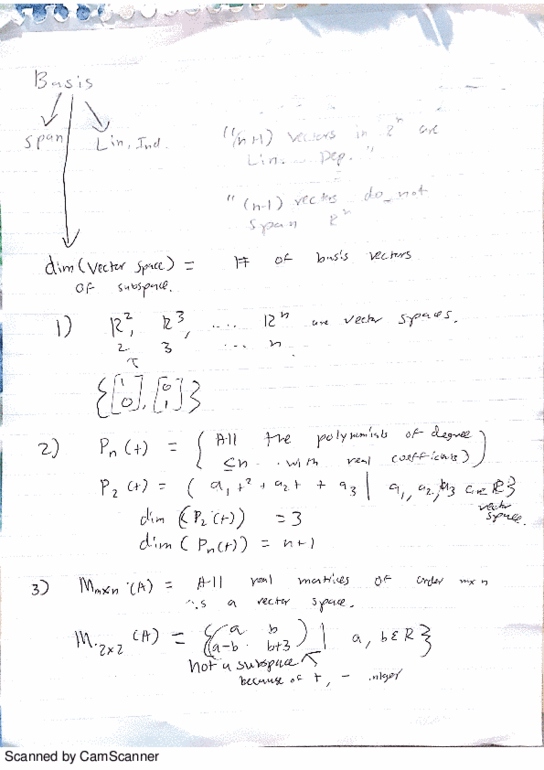 Basis
Span
Lin. Ind.
"(n+1) vectors in R^n are
Lin. Dep."
"(n-1) vectors do not
span R^n
dim(vector space) = # of basis vectors
or subspace.
1) R², R³, .... Rⁿ are vector spaces.
2 3 ... n
{[1 0], [0 1]}
2) Pn(t) = {All the polynomials of degree
≤n with real coefficients)}
P2(t) = { a1t² + a2t + a3 | a1, a2, a3 are R}
vector
space.
dim (P2(t)) = 3
dim (Pn(t)) = n+1
3) Mmxn (A) = All real matrices of order mxn
is a vector space.
M2x2 (A) = {(a b
a-b b+3) | a, b ε R}
Not a subspace
because of +, -
Scanned by CamScanner